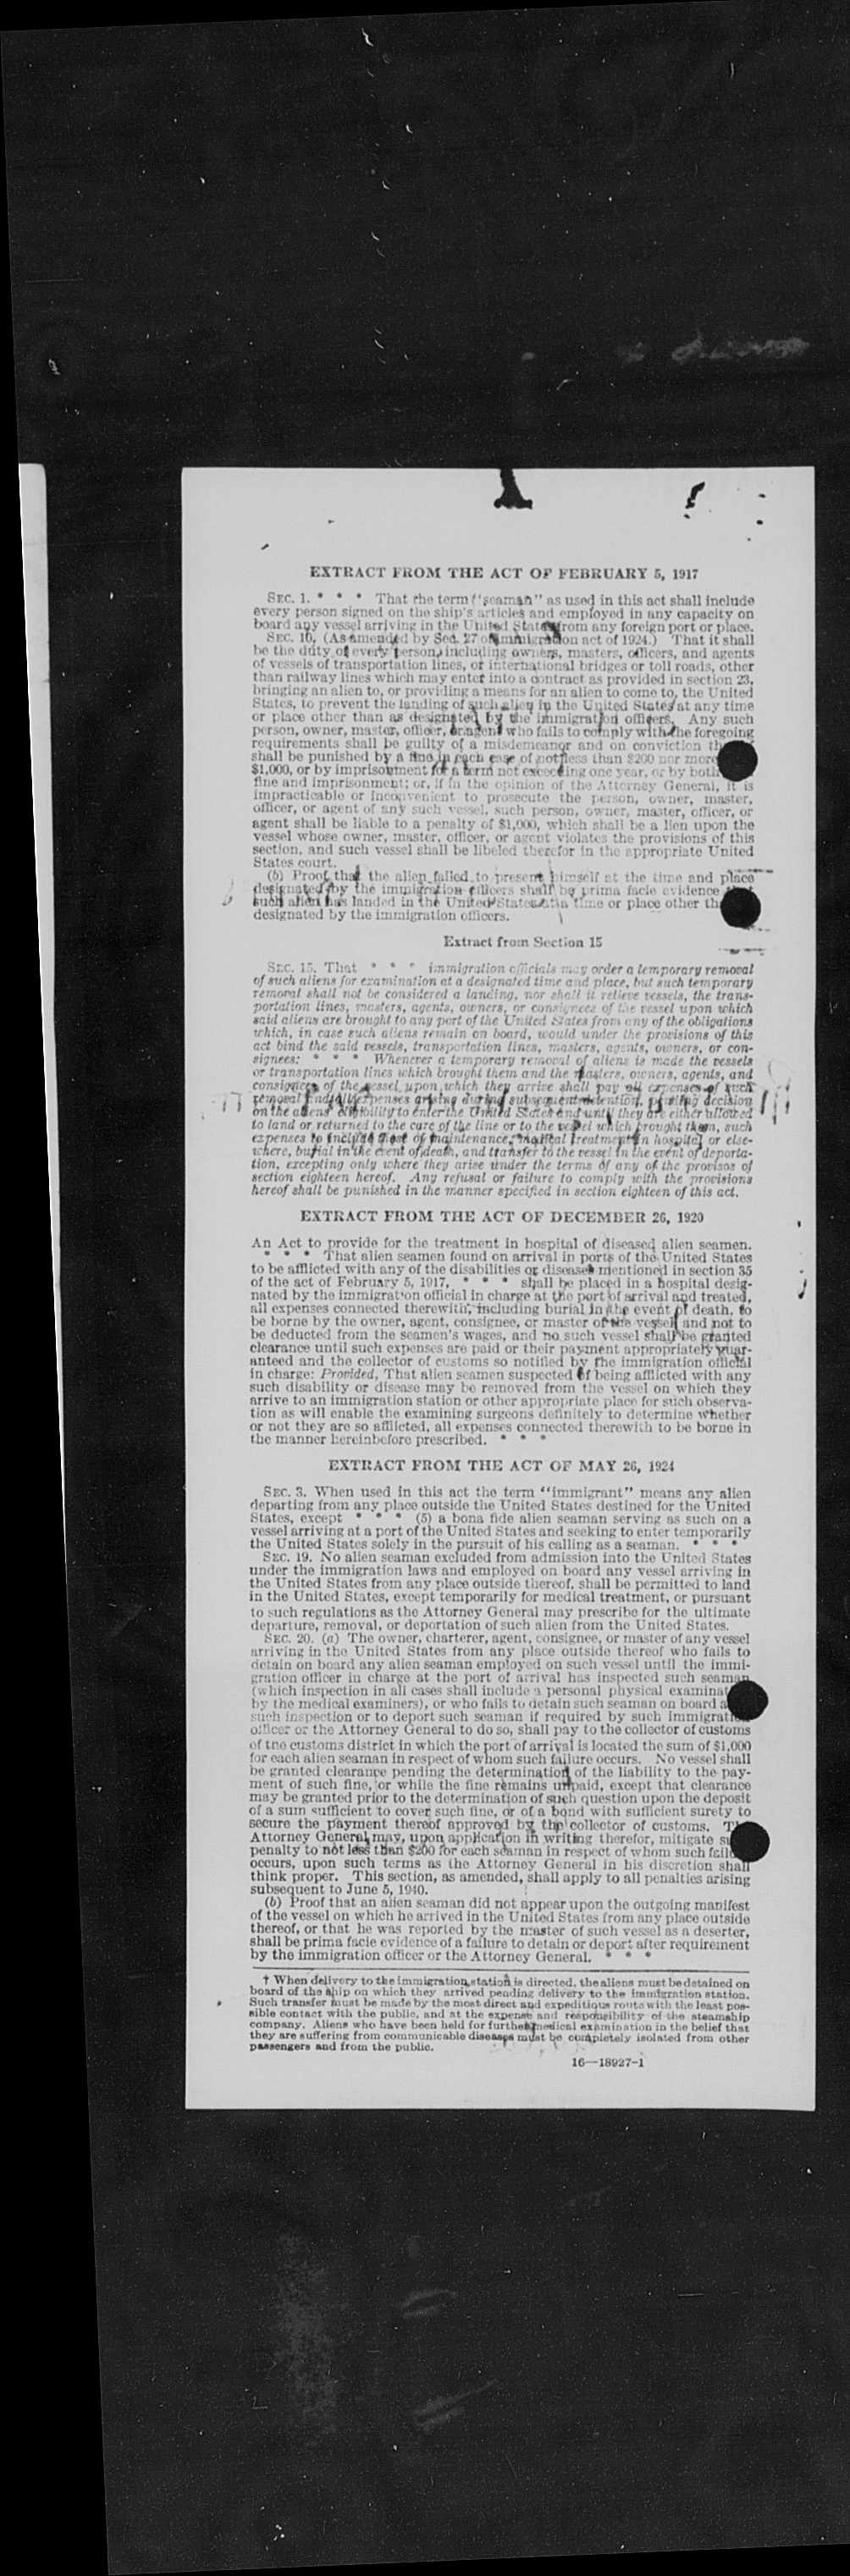 EXTRACT FROM THE ACT OF FEBRUARY 5, 1917
SEC. 1. * * * That the term "seaman" as used in this act shall include
every person signed on the ship's articles and employed in any capacity on
board any vessel arriving in the United States from any foreign port or place.
SEC. 10. (As amended by Sec. 27 of immigration act of 1924.) That it shall
be the duty of every person, including owners, masters, officers, and agents
of vessels of transportation lines, or international bridges or toll roads, other
than railway lines which may enter into a contract as provided in section 23,
bringing an alien to, or providing a means for an alien to come to, the United
States, to prevent the landing of such alien in the United States at any time
or place other than as designated by the immigration officers. Any such
person, owner, master, officer, or agent who fails to comply with the foregoing
requirements shall be guilty of a misdemeanor and on conviction
shall be punished by a fine in each case of not less than $200 nor more
$1,000, or by imprisonment for a term not exceeding one year, or by both
fine and imprisonment; or, if in the opinion of the Attorney General, it is
impracticable or inconvenient to prosecute the person, owner, master,
officer, or agent of any such vessel, such person, owner, master, officer, or
agent shall be liable to a penalty of $1,000, which shall be a lien upon the
vessel whose owner, master, officer, or agent violates the provisions of this
section, and such vessel shall be libeled therefor in the appropriate United
States court.
(b) Proof that the alien failed to present himself at the time and place
designated by the immigration officers shall be prima facie evidence that
such alien has landed in the United States at a time or place other
designated by the immigration officers.
Extract from Section 15
SEC. 15. That * * * immigration officials may order a temporary removal
of such aliens for examination at a designated time and place, but such temporary
removal shall not be considered a landing, nor shall it relieve vessels, the trans-
portation lines, masters, agents, owners, or consignees of the vessel upon which
said aliens are brought to any port of the United States from any of the obligations
which, in case such aliens remain on board, would under the provisions of this
act bind the said vessels, transportation lines, masters, agents, owners, or con-
signees: * * * Whenever a temporary removal of aliens is made the vessels
or transportation lines which brought them and the masters, owners, agents, and
consignees of the vessel upon which they arrive shall pay all expenses of such
removal and all expenses arising during subsequent detention, pending decision
on the aliens' eligibility to enter the United States and until they are either allowed
to land or returned to the care of the line or to the vessel which brought them, such
expenses to include those of maintenance, medical treatment in hospital or else-
where, burial in the event of death, and transfer to the vessel in the event of deporta-
tion, excepting only where they arise under the terms of any of the provisos of
section eighteen hereof. Any refusal or failure to comply with the provisions
hereof shall be punished in the manner specified in section eighteen of this act.
EXTRACT FROM THE ACT OF DECEMBER 26, 1920
An Act to provide for the treatment in hospital of diseased alien seamen.
* * * That alien seamen found on arrival in ports of the United States
to be afflicted with any of the disabilities or diseases mentioned in section 35
of the act of February 5, 1917, * * * shall be placed in a hospital desig-
nated by the immigration official in charge at the port of arrival and treated,
all expenses connected therewith, including burial in the event of death, to
be borne by the owner, agent, consignee, or master of the vessel, and not to
be deducted from the seamen's wages, and no such vessel shall be granted
clearance until such expenses are paid or their payment appropriately guar-
anteed and the collector of customs so notified by the immigration official
in charge: Provided, That alien seamen suspected of being afflicted with any
such disability or disease may be removed from the vessel on which they
arrive to an immigration station or other appropriate place for such observa-
tion as will enable the examining surgeons definitely to determine whether
or not they are so afflicted, all expenses connected therewith to be borne in
the manner hereinbefore prescribed. * * *
EXTRACT FROM THE ACT OF MAY 26, 1924
SEC. 3. When used in this act the term "immigrant" means any alien
departing from any place outside the United States destined for the United
States, except * * * (5) a bona fide alien seaman serving as such on a
vessel arriving at a port of the United States and seeking to enter temporarily
the United States solely in the pursuit of his calling as a seaman. * * *
SEC. 19. No alien seaman excluded from admission into the United States
under the immigration laws and employed on board any vessel arriving in
the United States from any place outside thereof, shall be permitted to land
in the United States, except temporarily for medical treatment, or pursuant
to such regulations as the Attorney General may prescribe for the ultimate
departure, removal, or deportation of such alien from the United States.
SEC. 20. (a) The owner, charterer, agent, consignee, or master of any vessel
arriving in the United States from any place outside thereof who fails to
detain on board any alien seaman employed on such vessel until the immi-
gration officer in charge at the port of arrival has inspected such seaman
(which inspection in all cases shall include a personal physical examination
by the medical examiners), or who fails to detain such seaman on board
such inspection or to deport such seaman if required by such immigration
officer or the Attorney General to do so, shall pay to the collector of customs
of the customs district in which the port of arrival is located the sum of $1,000
for each alien seaman in respect of whom such failure occurs. No vessel shall
be granted clearance pending the determination of the liability to the pay-
ment of such fine, or while the fine remains unpaid, except that clearance
may be granted prior to the determination of such question upon the deposit
of a sum sufficient to cover such fine, or of a bond with sufficient surety to
secure the payment thereof approved by the collector of customs. The
Attorney General may, upon application in writing therefor, mitigate such
penalty to not less than $200 for each seaman in respect of whom such failure
occurs, upon such terms as the Attorney General in his discretion shall
think proper. This section, as amended, shall apply to all penalties arising
subsequent to June 5, 1940.
(b) Proof that an alien seaman did not appear upon the outgoing manifest
of the vessel on which he arrived in the United States from any place outside
thereof, or that he was reported by the master of such vessel as a deserter,
shall be prima facie evidence of a failure to detain or deport after requirement
by the immigration officer or the Attorney General. * * *
† When delivery to the immigration station is directed, the aliens must be detained on
board of the ship on which they arrived pending delivery to the immigration station.
Such transfer must be made by the most direct and expeditious route with the least pos-
sible contact with the public, and at the expense and responsibility of the steamship
company. Aliens who have been held for further medical examination in the belief that
they are suffering from communicable diseases must be completely isolated from other
passengers and from the public.
16—18927-1